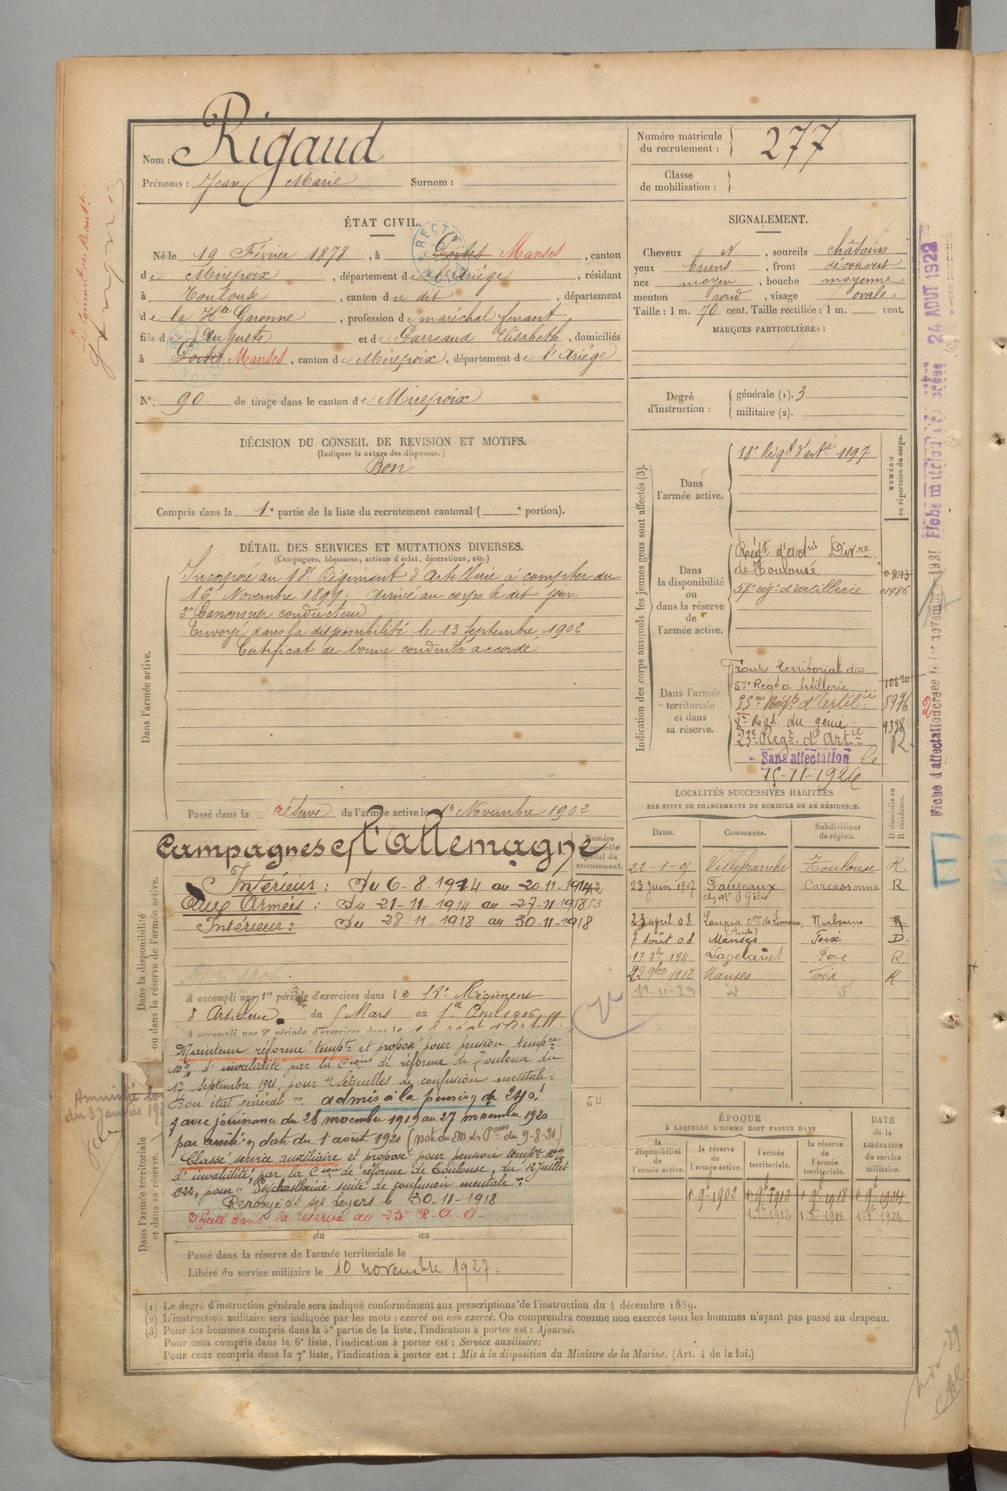 Nom : Rigaud
Prénoms : Jean Marie Surnom :
Numéro matricule du recrutement : 277
Classe de mobilisation :
ÉTAT CIVIL.
Né le 19 Février 1878, à Portes Manses, canton
de Mirepoix, département de l'Ariège, résidant
à Toulouse, canton du dit, département
de la Hte Garonne, profession de maréchal ferrant,
fils de Auguste et de Elisabeth, domiciliés
à Portes Manses, canton de Mirepoix, département de l'Ariège
N° 90 de tirage dans le canton de Mirepoix
SIGNALEMENT.
Cheveux N, sourcils châtains
yeux bruns, front découvert
nez moyen, bouche moyenne
menton rond, visage ovale
Taille : 1 m. 70 cent. Taille rectifiée : 1 m. cent.
MARQUES PARTICULIÈRES :
Degré d'instruction : générale (1). 3
militaire (2).
DÉCISION DU CONSEIL DE REVISION ET MOTIFS.
(Indiquer la nature des dispenses.)
Bon
Compris dans la 1e partie de la liste du recrutement cantonal ( e portion).
DÉTAIL DES SERVICES ET MUTATIONS DIVERSES.
(Campagnes, blessures, actions d'éclat, décorations, etc.)
Dans l'armée active.
Incorporé au 18e Régiment d'Artillerie à compter du
16 Novembre 1899, arrivé au corps le dit jour.
2e Canonnier conducteur
Envoyé dans la disponibilité le 13 Septembre 1902
Certificat de bonne conduite accordé
Passé dans la réserve de l'armée active le 1er Novembre 1902
Indication des corps auxquels les jeunes gens sont affectés (3).
NUMÉRO au répertoire du corps.
Dans l'armée active.
18e Régt d'Arte 1197
Dans la disponibilité ou dans la réserve de l'armée active.
Régt d'Arie Divre
de Toulouse
57e régt d'artillerie 01986
Dans l'armée territoriale et dans sa réserve.
Groupe Territorial du
57e Régt d'Artillerie
Régt d'Artilie 5976
2e Régt du génie 9338
23e Régt d'Artie
Sans affectation le
15-11-1926
Dans la disponibilité ou dans la réserve de l'armée active.
Campagnes c/ l'Allemagne
Numéro au contrôle spécial du recrutement.
Intérieur : Du 6-8-1914 au 20-11-1914
Aux Armées : Du 21-11-1914 au 27-11-1918
Intérieur : Du 28-11-1918 au 30-11-1918
A accompli une 1re période d'exercices dans le 18e Régiment
d'Artillerie du 5 Mars au 1er Avril 1906
Maintenu réformé tempre et proposé pour pension tempre
10% d'invalidité par la Cion de réforme de Toulouse du
17 Septembre 1921 pour "Séquelles de confusion mentale.
Bon état général" admis à la pension de 240f
avec jouissance du 28 novembre 1919 au 27 novembre 1920
par arrêté en date du 1 août 1920
Classé service auxiliaire et proposé pour pension tempre 10%
d'invalidité, par la Cion de réforme de Toulouse, du Juillet
1922, pour "Psychasthénie suite de confusion mentale".
Renvoyé ds ses foyers le 30-11-1918
Affecté dans la réserve au 23e R.A.D.
Dans l'armée territoriale et dans sa réserve.
du au
Passé dans la réserve de l'armée territoriale le
Libéré du service militaire le 10 novembre 1927.
LOCALITÉS SUCCESSIVES HABITÉES
PAR SUITE DE CHANGEMENTS DE DOMICILE OU DE RÉSIDENCE.
Dates. Communes. Subdivisions de région. D domicile ou R résidence.
Villefranche Toulouse R.
23 juin 1907 Fanjeaux Carcassonne R
23 avril 08 Loupia con de Limoux (Aude) Narbonne R
7 août 08 Manses Foix D.
Lavelanet Foix R
1912 Manses Foix R
ÉPOQUE
A LAQUELLE L'HOMME DOIT PASSER DANS
la disponibilité de l'armée active. la réserve de l'armée active. l'armée territoriale. la réserve de l'armée territoriale. DATE de la LIBÉRATION du service militaire.
(1) Le degré d'instruction générale sera indiqué conformément aux prescriptions de l'instruction du 4 décembre 1889.
(2) L'instruction militaire sera indiquée par les mots : exercé ou non exercé. On comprendra comme non exercés tous les hommes n'ayant pas passé au drapeau.
(3) Pour les hommes compris dans la 5e partie de la liste, l'indication à porter est : Ajourné.
Pour ceux compris dans la 6e liste, l'indication à porter est : Service auxiliaire;
Pour ceux compris dans la 7e liste, l'indication à porter est : Mis à la disposition du Ministre de la Marine. (Art. 4 de la loi.)